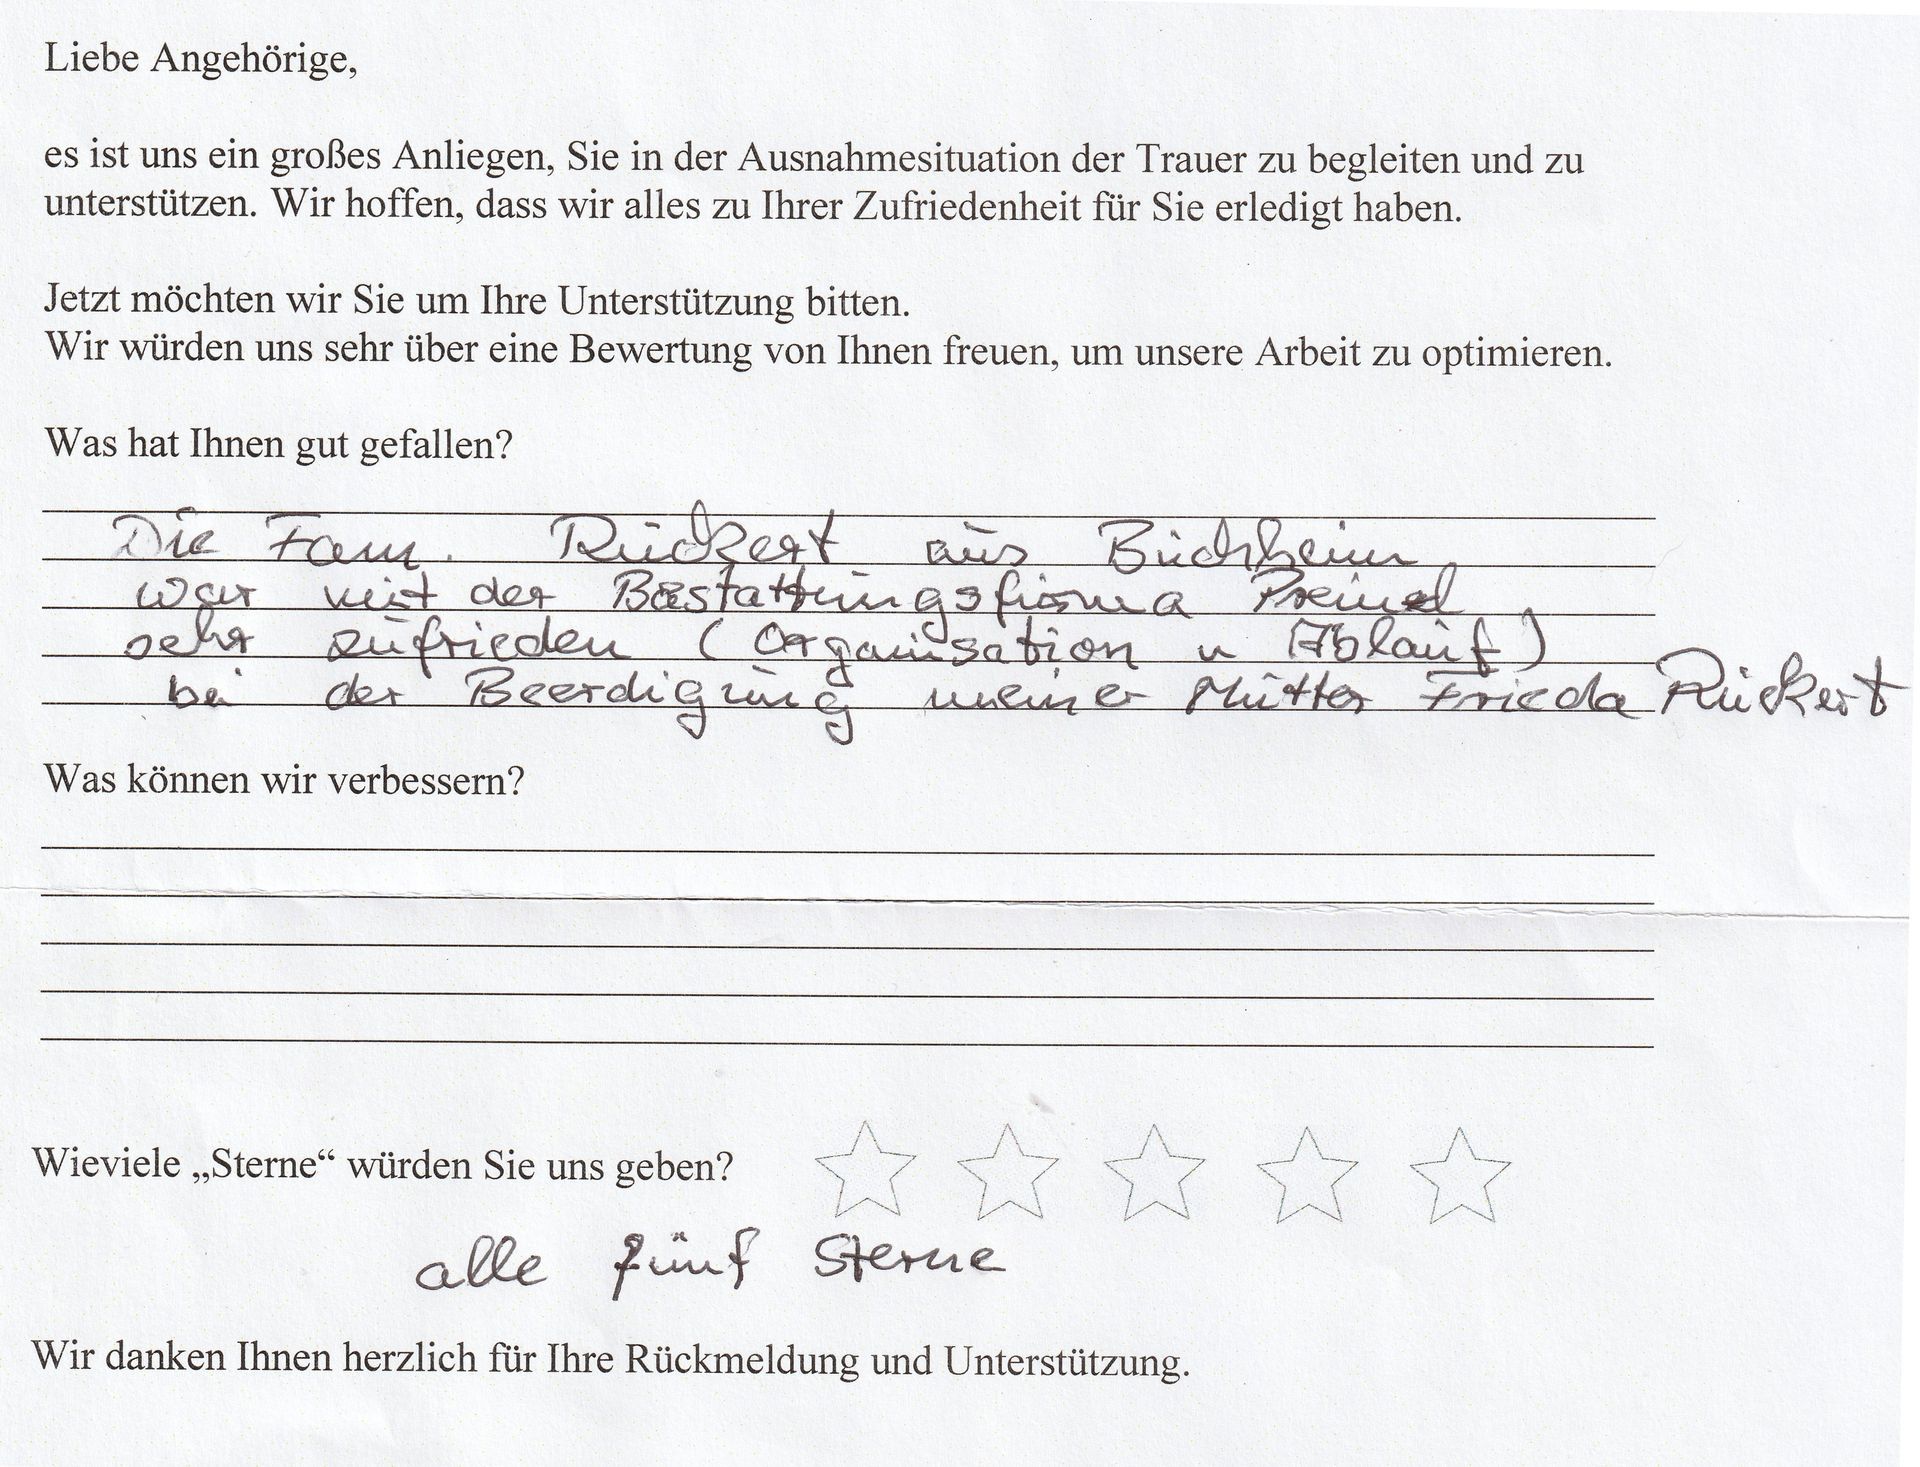 Liebe Angehörige,
es ist uns ein großes Anliegen, Sie in der Ausnahmesituation der Trauer zu begleiten und zu
unterstützen. Wir hoffen, dass wir alles zu Ihrer Zufriedenheit für Sie erledigt haben.
Jetzt möchten wir Sie um Ihre Unterstützung bitten.
Wir würden uns sehr über eine Bewertung von Ihnen freuen, um unsere Arbeit zu optimieren.
Was hat Ihnen gut gefallen?
Die Fam. Rückert aus
war mit der Bestattungsfirma
sehr zufrieden (Organisation u Ablauf)
bei der Beerdigung meiner Mutter Frieda Rückert
Was können wir verbessern?
Wieviele „Sterne“ würden Sie uns geben?
alle fünf Sterne
Wir danken Ihnen herzlich für Ihre Rückmeldung und Unterstützung.